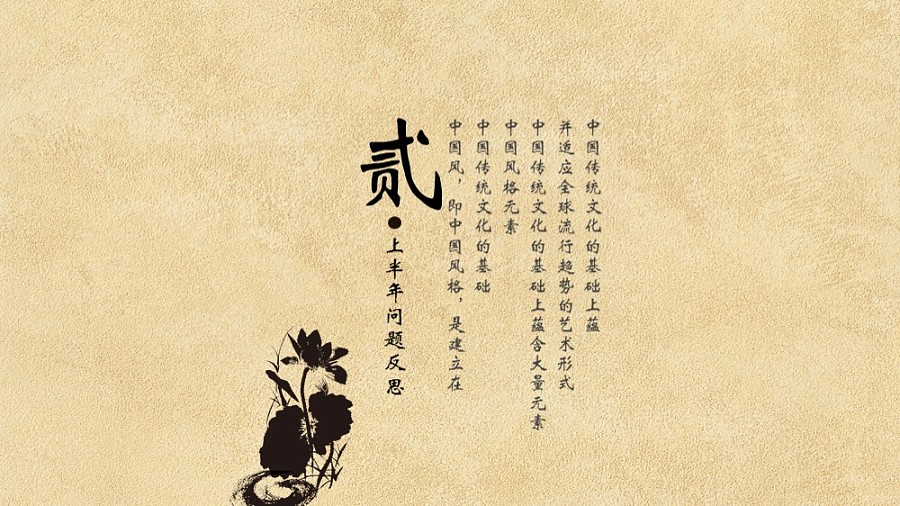 贰
上半年问题反思
中国风，即中国风格，是建立在
中国传统文化的基础
中国风格元素
中国传统文化的基础上蕴含大量元素
并适应全球流行趋势的艺术形式
中国传统文化的基础上蕴